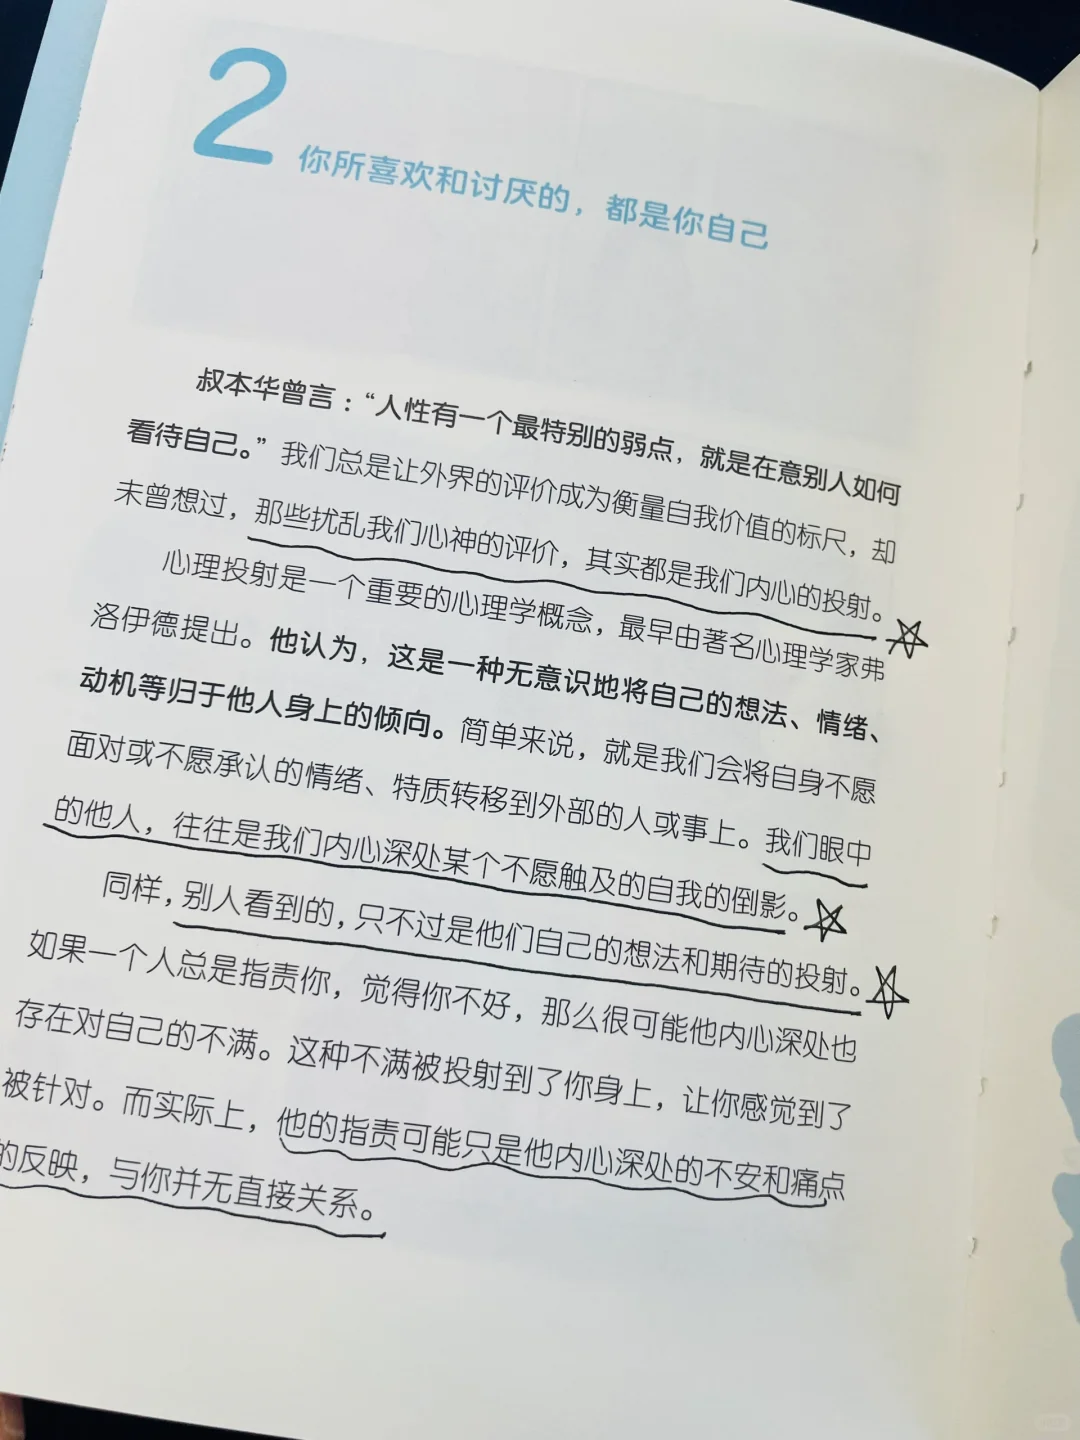 2
你所喜欢和讨厌的，都是你自己
叔本华曾言：“人性有一个最特别的弱点，就是在意别人如何
看待自己。”我们总是让外界的评价成为衡量自我价值的标尺，却
未曾想过，那些扰乱我们心神的评价，其实都是我们内心的投射。
心理投射是一个重要的心理学概念，最早由著名心理学家弗
洛伊德提出。他认为，这是一种无意识地将自己的想法、情绪、
动机等归于他人身上的倾向。简单来说，就是我们会将自身不愿
面对或不愿承认的情绪、特质转移到外部的人或事上。我们眼中
的他人，往往是我们内心深处某个不愿触及的自我的倒影。
同样，别人看到的，只不过是他们自己的想法和期待的投射。
如果一个人总是指责你，觉得你不好，那么很可能他内心深处也
存在对自己的不满。这种不满被投射到了你身上，让你感觉到了
被针对。而实际上，他的指责可能只是他内心深处的不安和痛点
的反映，与你并无直接关系。